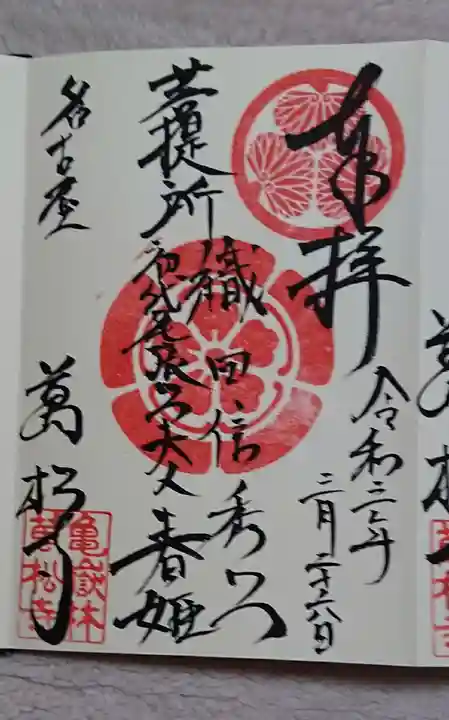 奉拝
令和三年
三月二十六日
織田信秀公
菩提所
初代尾張公夫人春姫
名古屋
萬松寺
亀嶽林
萬松寺